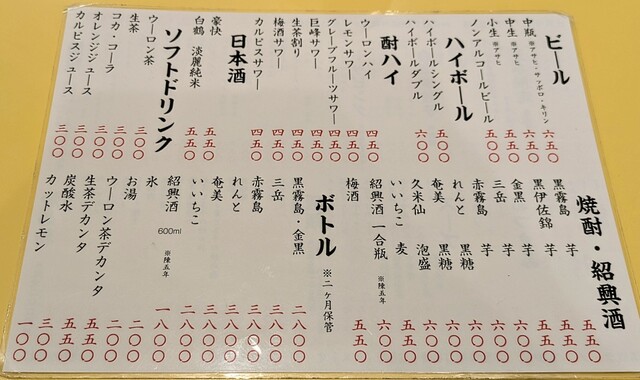 ビール
中瓶 ※アサヒ・サッポロ・キリン 六五〇
中生 ※アサヒ
小生 ※アサヒ
ノンアルコールビール 五〇〇
ハイボール
ハイボールシングル 五〇〇
ハイボールダブル 六〇〇
酎ハイ
ウーロンハイ 四五〇
レモンサワー 四五〇
グレープフルーツサワー 四五〇
巨峰サワー 四五〇
生茶割り 四五〇
梅酒サワー 四五〇
カルピスサワー 四五〇
日本酒
豪快 五五〇
白鶴 淡麗純米 五五〇
ソフトドリンク
ウーロン茶 三〇〇
生茶 三〇〇
コカ・コーラ 三〇〇
オレンジジュース 三〇〇
カルピスジュース 三〇〇
焼酎・紹興酒
黒霧島 芋 五五〇
黒伊佐錦 芋 五五〇
金黒 芋 五五〇
三岳 芋 六〇〇
赤霧島 芋 六〇〇
れんと 黒糖 六〇〇
奄美 黒糖 六〇〇
久米仙 泡盛 六〇〇
いいちこ 麦 五五〇
紹興酒 一合瓶 ※陳五年 六〇〇
梅酒 五五〇
ボトル ※二ヶ月保管
黒霧島・金黒 二八〇〇
三岳 三八〇〇
赤霧島 三八〇〇
れんと 三八〇〇
奄美 三八〇〇
いいちこ 二八〇〇
紹興酒 600ml ※陳五年 一八〇〇
氷 二〇〇
お湯 二〇〇
ウーロン茶デカンタ 五五〇
生茶デカンタ 五五〇
炭酸水 三〇〇
カットレモン 一〇〇